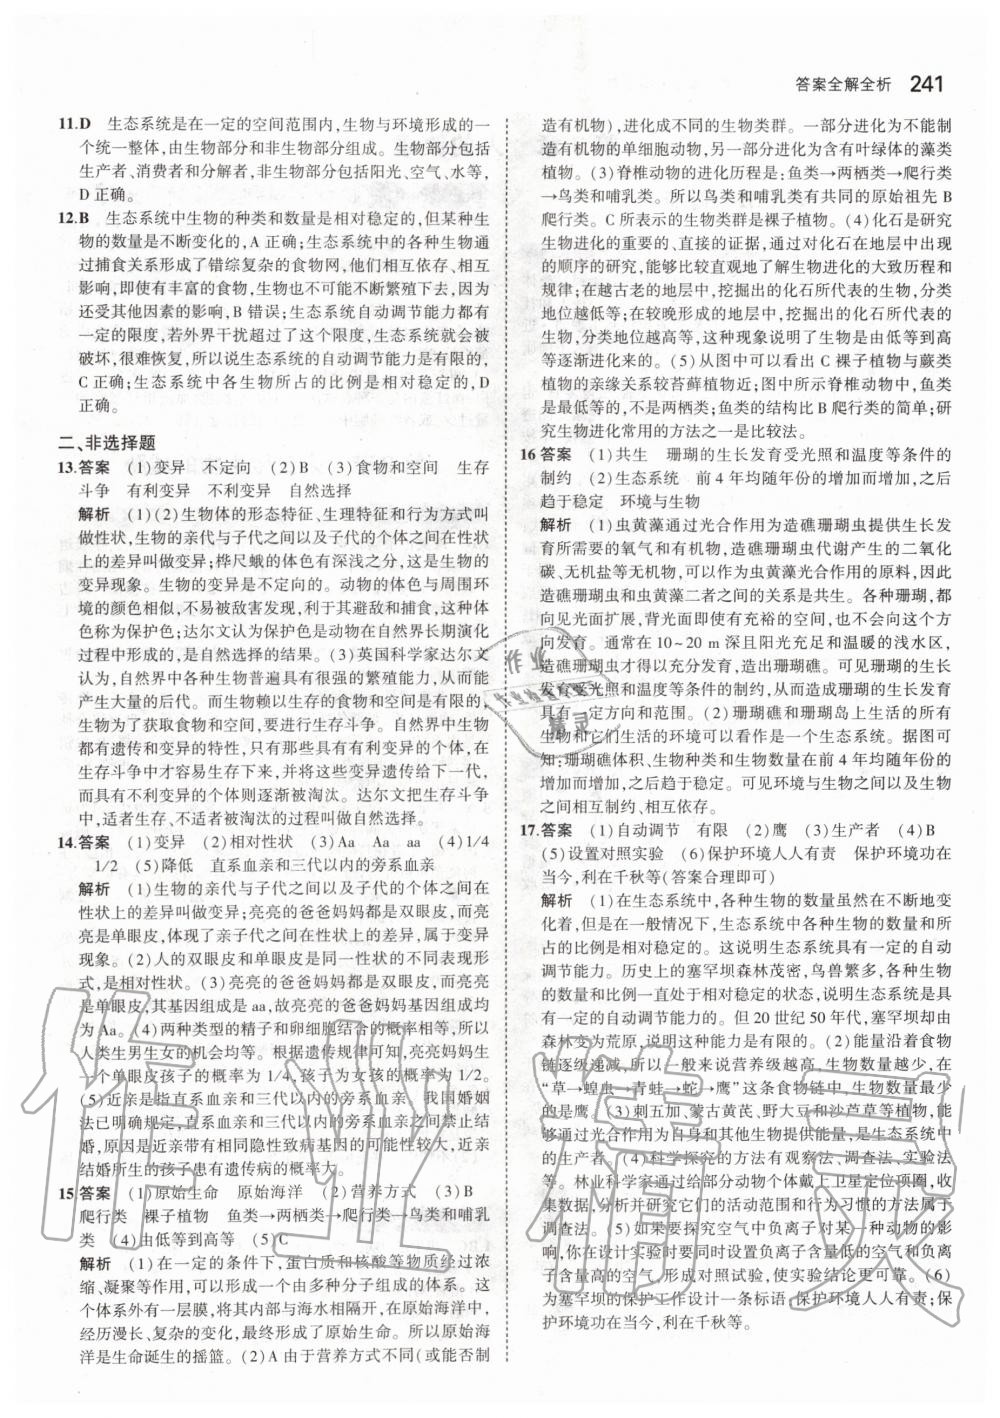 答案全解全析 241
11.D 生态系统是在一定的空间范围内,生物与环境形成的一
个统一整体,由生物部分和非生物部分组成。生物部分包括
生产者、消费者和分解者,非生物部分包括阳光、空气、水等,
D正确。
12.B 生态系统中生物的种类和数量是相对稳定的,但某种生
物的数量是不断变化的,A正确;生态系统中的各种生物通
过捕食关系形成了错综复杂的食物网,他们相互依存、相互
影响,即使有丰富的食物,生物也不可能不断繁殖下去,因为
还受其他因素的影响,B错误;生态系统自动调节能力都有
一定的限度,若外界干扰超过了这个限度,生态系统就会被
破坏,很难恢复,所以说生态系统的自动调节能力是有限的,
C正确;生态系统中各生物所占的比例是相对稳定的,D
正确。
二、非选择题
13.答案 (1)变异 不定向 (2)B (3)食物和空间 生存
斗争 有利变异 不利变异 自然选择
解析 (1)(2)生物体的形态特征、生理特征和行为方式叫
做性状,生物的亲代与子代之间以及子代的个体之间在性状
上的差异叫做变异;桦尺蛾的体色有深浅之分,这是生物的
变异现象。生物的变异是不定向的。动物的体色与周围环
境的颜色相似,不易被敌害发现,利于其躲避敌和捕食,这种体
色称为保护色;达尔文认为保护色是动物在自然界长期演化
过程中形成的,是自然选择的结果。(3)英国科学家达尔文
认为,自然界中各种生物普遍具有很强的繁殖能力,从而能
产生大量的后代。而生物赖以生存的食物和空间是有限的,
生物为了获取食物和空间,要进行生存斗争。自然界中生物
都有遗传和变异的特性,只有那些具有有利变异的个体,在
生存斗争中才容易生存下来,并将这些变异遗传给下一代,
而具有不利变异的个体则逐渐被淘汰。达尔文把生存斗争
中,适者生存、不适者被淘汰的过程叫做自然选择。
14.答案 (1)变异 (2)相对性状 (3)Aa aa Aa (4)1/4
1/2 (5)降低 直系血亲和三代以内的旁系血亲
解析 (1)生物的亲代与子代之间以及子代的个体之间在
性状上的差异叫做变异;亮亮的爸爸妈妈都是双眼皮,而亮
亮是单眼皮,体现了亲子代之间性状上的差异,属于变异
现象。(2)人的双眼皮和单眼皮是同一性状的不同表现形
式,是相对性状。(3)亮亮的爸爸妈妈都是双眼皮,而亮亮
是单眼皮,其基因组成是aa,故亮亮的爸爸妈妈基因组成均
为Aa。(4)两种类型的精子和卵细胞结合的概率相等,所以
人类生男生女的机会均等。根据遗传规律可知,亮亮妈妈
生一个单眼皮孩子的概率为1/4,孩子为女孩的概率为1/2。
(5)近亲是指直系血亲和三代以内的旁系血亲。我国婚姻
法已明确规定,直系血亲和三代以内的旁系血亲之间禁止
结婚,原因是近亲带有相同隐性致病基因的可能性较大,近亲
结婚所生的孩子患有遗传病的概率大。
15.答案 (1)原始生命 原始海洋 (2)营养方式 (3)B
爬行类 裸子植物 鱼类→两栖类→爬行类→鸟类和哺乳
类 (4)由低等到高等 (5)C
解析 (1)在一定的条件下,蛋白质和核酸等物质经过浓
缩、凝聚等作用,可以形成一个由多种分子组成的体系。这
个体系外有一层膜,将其内部与海水相隔开,在原始海洋中,
经历漫长、复杂的变化,最终形成了原始生命。所以原始海
洋是生命诞生的摇篮。(2)A由于营养方式不同(或能否制
造有机物),进化成不同的生物类群。一部分进化为不能制
造有机物的单细胞动物,另一部分进化为含有叶绿体的藻类
植物。(3)脊椎动物的进化历程是:鱼类→两栖类→爬行类
→鸟类和哺乳类。所以鸟类和哺乳类有共同的原始祖先B
爬行类。C所表示的生物类群是裸子植物。(4)化石是研究
生物进化的重要的、直接的证据,通过对化石在地层中出现
的顺序的研究,能够比较直观地了解生物进化的大致历程和
规律;在越古老的地层中,挖掘出的化石所代表的生物,分类
地位越低等;在较晚形成的地层中,挖掘出的化石所代表的
生物,分类地位越高等,这种现象说明了生物是由低等到高
等逐渐进化来的。(5)从图中可以看出C裸子植物与蕨类
植物的亲缘关系较苔藓植物近;图中所示脊椎动物中,鱼类
是最低等的,不是两栖类;鱼类的结构比B爬行类的简单;研
究生物进化常用的方法之一是比较法。
16.答案 (1)共生 珊瑚的生长发育受光照和温度等条件的
制约 (2)生态系统 前4年均随年份的增加而增加,之后
趋于稳定 环境与生物
解析 (1)虫黄藻通过光合作用为造礁珊瑚虫提供生长发
育所需要的氧气和有机物,造礁珊瑚虫代谢产生的二氧化
碳、无机盐等无机物,可以作为虫黄藻光合作用的原料,因此
造礁珊瑚虫和虫黄藻二者之间的关系是共生。各种珊瑚,都
向见光面扩展,背光面即使有充裕的空间,也不会向这个方
向发育。通常在10~20 m深且阳光充足和温暖的浅水区,
造礁珊瑚虫才得以充分发育,造出珊瑚礁。可见珊瑚的生长
发育受光照和温度等条件的制约,从而造成珊瑚礁的发育
具有一定方向和范围。(2)珊瑚礁和珊瑚岛上生活的所有
生物和它们生活的环境可以看作是一个生态系统。据图可
知:珊瑚礁体积、生物种类和生物数量在前4年均随年份的
增加而增加,之后趋于稳定。可见环境与生物、生物与生物
之间相互制约、相互依存。
17.答案 (1)自动调节 有限 (2)鹰 (3)生产者 (4)B
(5)设置对照实验 (6)保护环境人人有责 保护环境功在
当今,利在千秋等(答案合理即可)
解析 (1)在生态系统中,各种生物的数量虽然在不断地变
化着,但是在一般情况下,生态系统中各种生物的数量和所
占的比例是相对稳定的。这说明生态系统具有一定的自动
调节能力。历史上的塞罕坝森林茂密,鸟兽繁多,各种生物
的数量和比例一直处于相对稳定的状态,说明生态系统具有
一定的自动调节能力的。但20世纪50年代,塞罕坝却由
森林变为荒原,说明这种能力是有限的。(2)能量沿着食物
链逐级递减,所以一般来说营养级越高,生物数量越少,在
“草→蝗虫→青蛙→蛇→鹰”这条食物链中,生物数量最少
的是鹰。(3)刺五加、蒙古黄芪、野大豆和沙芦草等植物,能
够通过光合作用为自身和其他生物提供能量,是生态系统中
的生产者。(4)科学探究的方法有观察法、调查法、实验法
等。林业科学家通过给部分动物个体戴上卫星定位项圈,收
集数据,分析并研究它们的活动范围和行为习惯的方法属于
调查法。(5)如果要探究空气中负离子对某一种动物的影
响,你在设计实验时要同时设置负离子含量低的空气和负离
子含量高的空气,形成对照试验,使实验结论更可靠。(6)
为塞罕坝的保护工作设计一条标语:保护环境人人有责;保
护环境功在当今,利在千秋等。
作业精灵